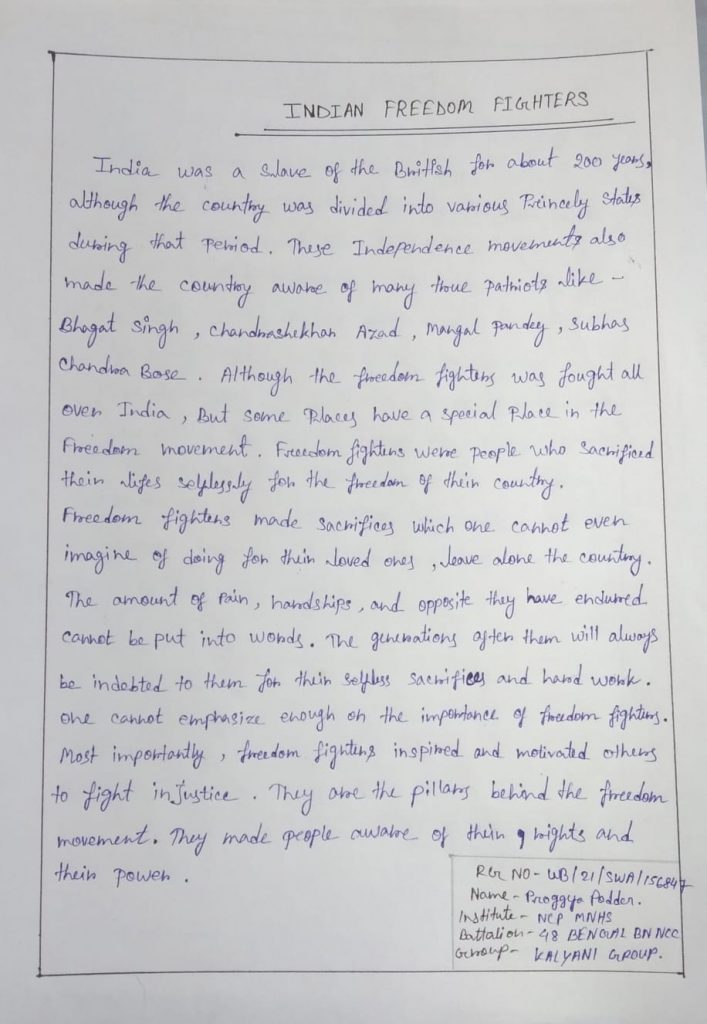 INDIAN FREEDOM FIGHTERS
India was a slave of the British for about 200 years,
although the country was divided into various Princely States
during that Period. These Independence movements also
made the country aware of many true patriots like -
Bhagat Singh, Chandrashekhar Azad, Mangal Pandey, Subhas
Chandra Bose. Although the freedom fighters was fought all
over India, But some Places have a special Place in the
Freedom movement. Freedom fighters were people who sacrificed
their lifes selflessly for the freedom of their country.
Freedom fighters made sacrifices which one cannot even
imagine of doing for their loved ones, leave alone the country.
The amount of Pain, hardships, and opposite they have endured
cannot be put into words. The generations after them will always
be indebted to them for their selfless sacrifices and hard work.
One cannot emphasize enough on the importance of freedom fighters.
Most importantly, freedom fighters inspired and motivated others
to fight injustice. They are the pillars behind the freedom
movement. They made people aware of their rights and
their power.
RGL NO- WB/21/SWA/156847
Name- Proggya Podder.
Institute- NCP MNHS
Battalion- 48 BENGAL BN NCC
Group- KALYANI GROUP.